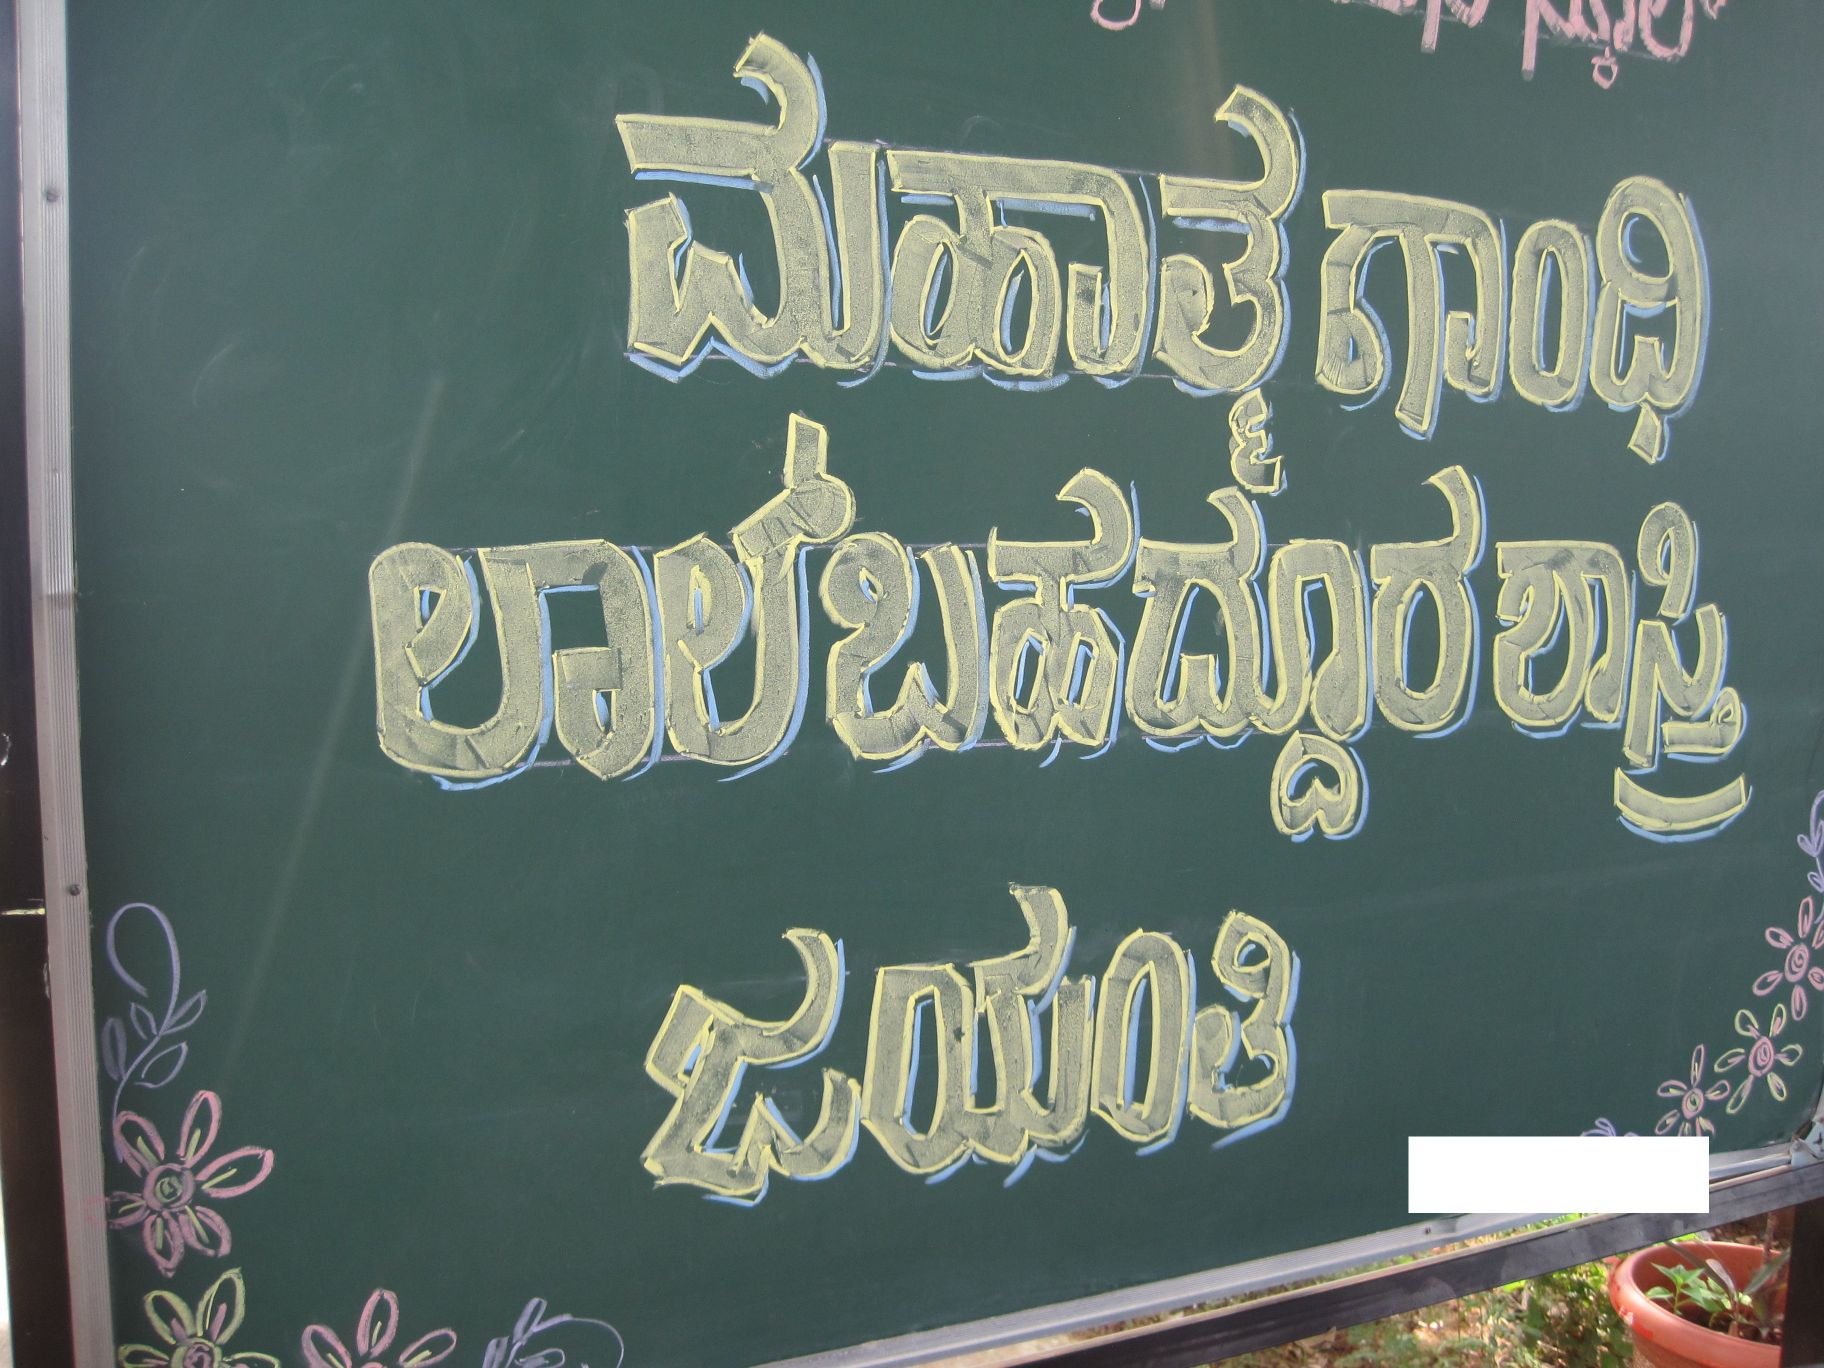 ಮಹಾತ್ಮ ಗಾಂಧಿ
ಲಾಲ್ ಬಹದ್ದೂರ ಶಾಸ್ತ್ರಿ
ಜಯಂತಿ